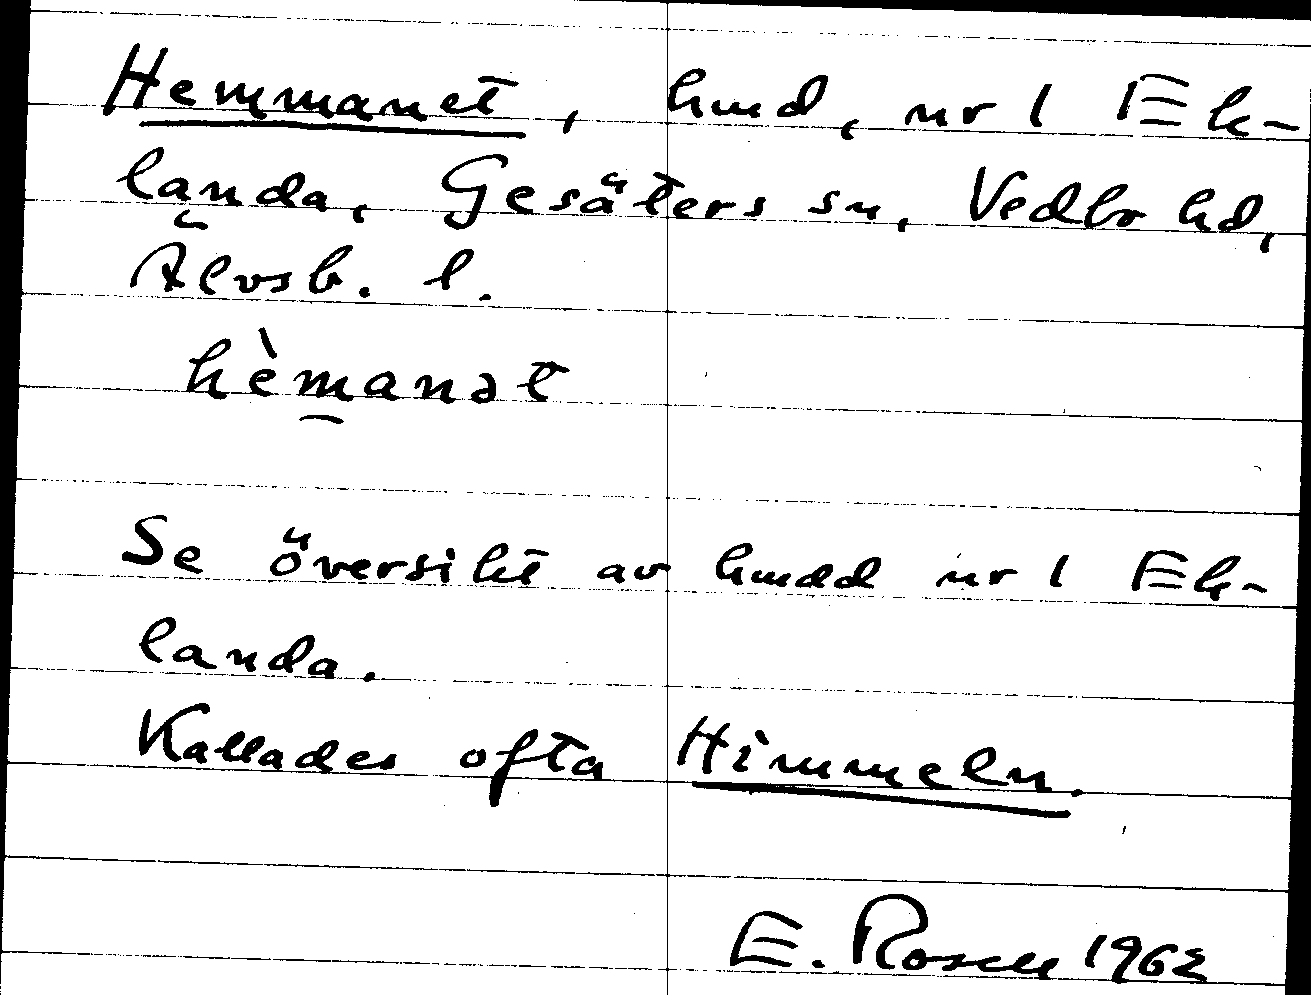 Hemmanet, hmd, nr 1 Ek-
landa, Gesäters sn, Vedbo hd,
Älvsb. l.
hèmanət
Se översikt av hmdd nr 1 Ek-
landa.
Kallades ofta Himmeln.
E. Rosell 1962